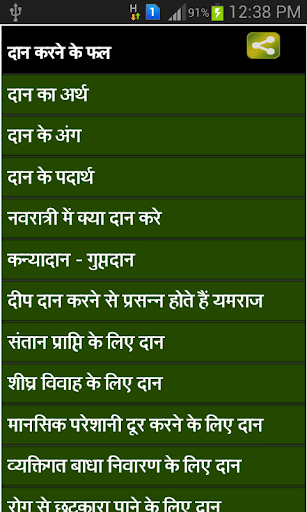 H 1 91% 12:38 PM
दान करने के फल
दान का अर्थ
दान के अंग
दान के पदार्थ
नवरात्री में क्या दान करे
कन्यादान - गुप्तदान
दीप दान करने से प्रसन्न होते हैं यमराज
संतान प्राप्ति के लिए दान
शीघ्र विवाह के लिए दान
मानसिक परेशानी दूर करने के लिए दान
व्यक्तिगत बाधा निवारण के लिए दान
रोग से छुटकारा पाने के लिए दान